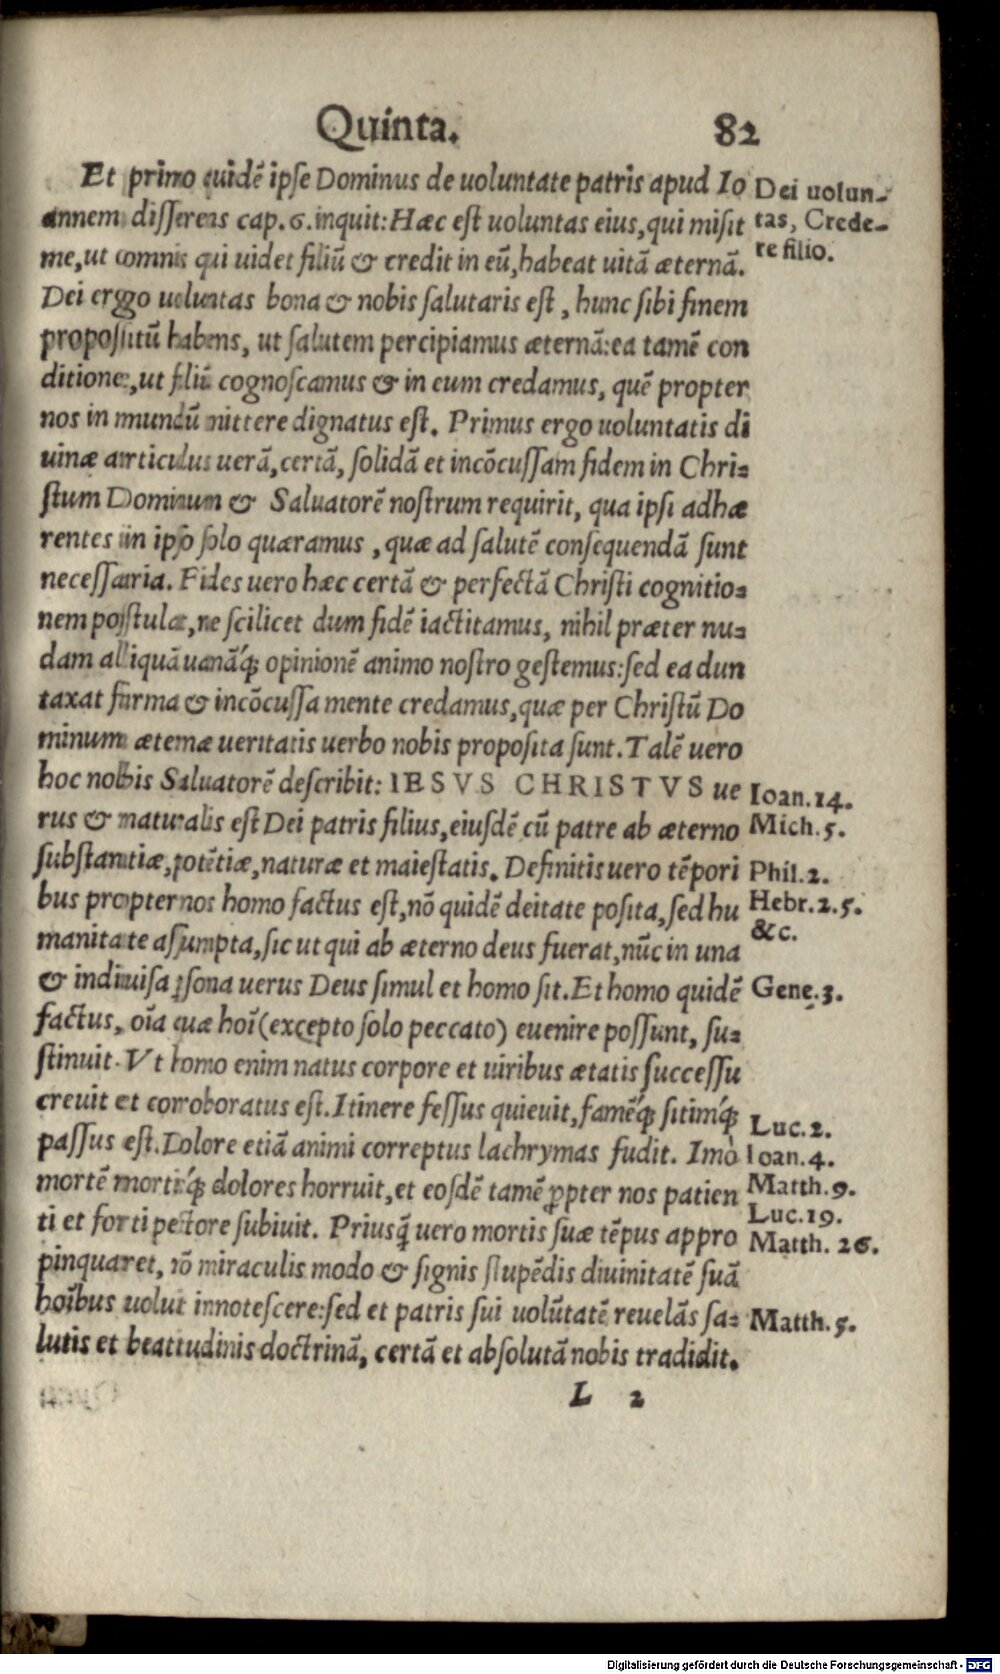 Quinta. 82
Et primo quidē ipſe Dominus de uoluntate patris apud Io
annem diſſerens cap. 6. inquit: Hæc eſt uoluntas eius, qui miſit
me, ut omnis qui uidet filiū & credit in eū, habeat uitā æternā.
Dei ergo uoluntas bona & nobis ſalutaris eſt, hunc ſibi finem
propoſitū habens, ut ſalutem percipiamus æternā: ea tamē con
ditione, ut filiū cognoſcamus & in eum credamus, quē propter
nos in mundū mittere dignatus eſt. Primus ergo uoluntatis di
uinæ articulus uerā, certā, ſolidā et incōcuſſam fidem in Chri=
ſtum Dominum & Saluatorē noſtrum requirit, qua ipſi adhæ
rentes in ipſo ſolo quæramus, quæ ad ſalutē conſequendā ſunt
neceſſaria. Fides uero hæc certā & perfectā Chriſti cognitio=
nem poſtulat, ne ſcilicet dum fidē iactitamus, nihil præter nu=
dam aliquā uanāq́ꝫ opinionē animo noſtro geſtemus: ſed ea dun
taxat firma & incōcuſſa mente credamus, quæ per Chriſtū Do
minum æternæ ueritatis uerbo nobis propoſita ſunt. Talē uero
hoc nobis Saluatorē deſcribit: IESVS CHRISTVS ue
rus & naturalis eſt Dei patris filius, eiuſdē cū patre ab æterno
ſubſtantiæ, potētiæ, naturæ et maieſtatis. Definitis uero tēpori
bus propter nos homo factus eſt, nō quidē deitate poſita, ſed hu
manitate aſſumpta, ſic ut qui ab æterno deus fuerat, nūc in una
& indiuiſa ꝑſona uerus Deus ſimul et homo ſit. Et homo quidē
factus, oīa quæ hoī (excepto ſolo peccato) euenire poſſunt, ſu=
ſtinuit. Vt homo enim natus corpore et uiribus ætatis ſucceſſu
creuit et corroboratus eſt. Itinere feſſus quieuit, famēq́ꝫ ſitimq́ꝫ
paſſus eſt. Dolore etiā animi correptus lachrymas fudit. Imò
mortē mortisq́ꝫ dolores horruit, et eoſdē tamē ꝓpter nos patien
ti et forti pectore ſubiuit. Priusq̄ uero mortis ſuæ tēpus appro
pinquaret, nō miraculis modo & ſignis ſtupēdis diuinitatē ſuā
hoībus uoluit innoteſcere: ſed et patris ſui uolūtatē reuelās ſa=
lutis et beatitudinis doctrinā, certā et abſolutā nobis tradidit.
L 2
Dei uolun-
tas, Crede-
re filio.
Ioan. 14.
Mich. 5.
Phil. 2.
Hebr. 2. 5.
&c.
Gene. 3.
Luc. 2.
Ioan. 4.
Matth. 9.
Luc. 19.
Matth. 26.
Matth. 5.
Digitalisierung gefördert durch die Deutsche Forschungsgemeinschaft - DFG